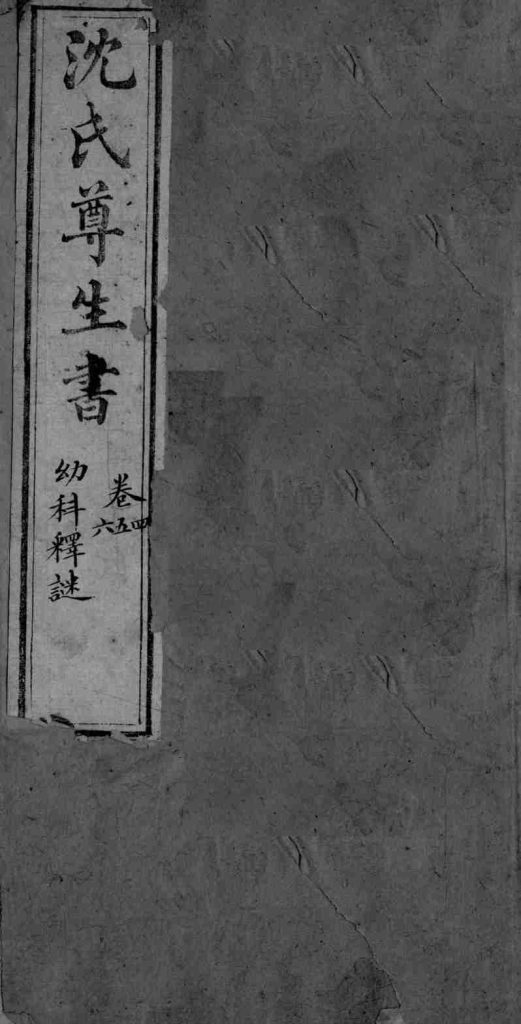 沈氏尊生書
卷四五六
幼科釋謎